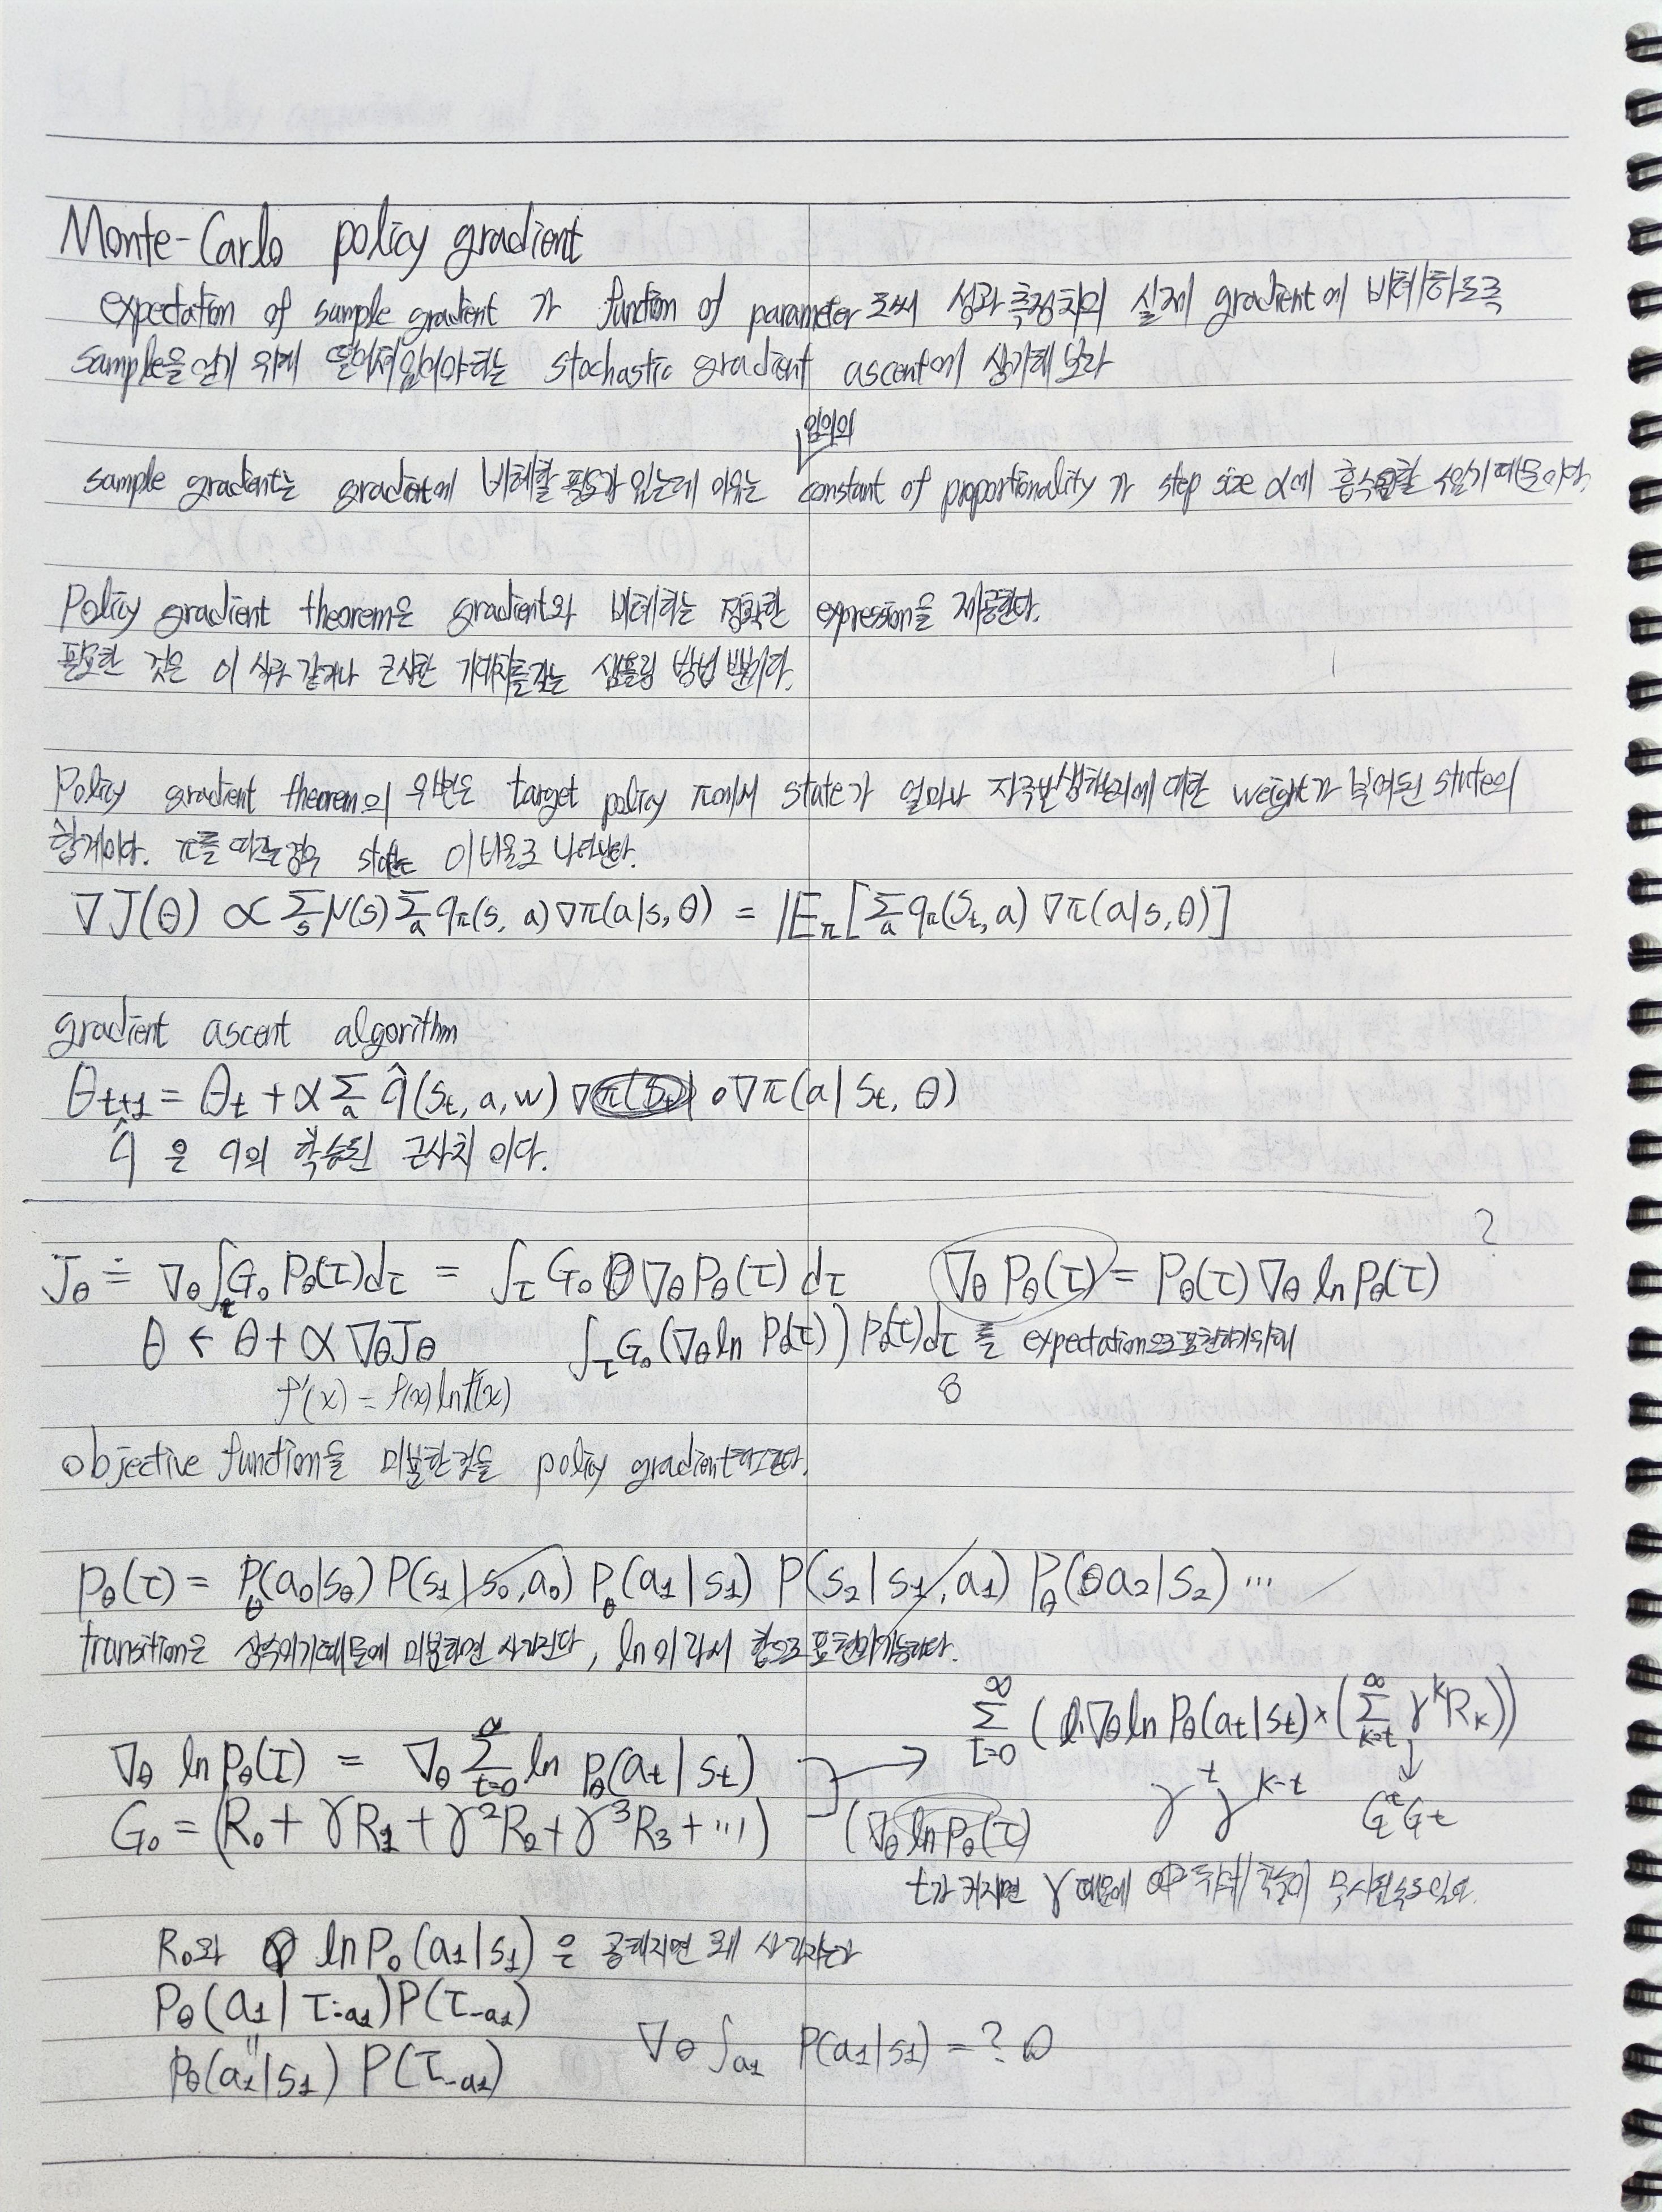 Monte-Carlo policy gradient
expectation of sample gradient 가 function of parameter 로써 성과 측정치의 실제 gradient에 비례하도록
sample을 얻기 위해 떨어져있어야하는 stochastic gradient ascent에 생각해 보라
임의의
sample gradient는 gradient에 비례할 필요가 있는데 이유는 constant of proportionality 가 step size α에 흡수될 수있기 때문이다.
Policy gradient theorem은 gradient와 비례하는 정확한 expression을 제공한다.
필요한 것은 이 식과 같거나 근사한 기대치를갖는 샘플링 방법 뿐이다.
Policy gradient theorem의 우변은 target policy π에서 state가 얼마나 자주발생하는지에 대한 weight가 부여된 state의
합계이다. π를 따를경우 state는 이 비율로 나타난다.
∇J(θ) ∝ Σ_s μ(s) Σ_a q_π(s, a) ∇π(a|s, θ) = E_π[Σ_a q_π(S_t, a) ∇π(a|s, θ)]
gradient ascent algorithm
θ_{t+1} = θ_t + α Σ_a q̂(S_t, a, w) ∇π(a | S_t, θ)
q̂ 은 q의 학습된 근사치 이다.
?
J_θ ≐ ∇_θ ∫_τ G_0 P_θ(τ)dτ = ∫_τ G_0 ∇_θ P_θ(τ) dτ ∇_θ P_θ(τ) = P_θ(τ) ∇_θ ln P_θ(τ)
θ ← θ + α ∇_θ J_θ ∫_τ G_0 (∇_θ ln P_θ(τ)) P_θ(τ)dτ 를 expectation으로표현하기위해
f'(x) = f(x) ln f(x)
objective function을 미분한것을 policy gradient라고한다.
P_θ(τ) = P_θ(a_0|s_0) P(s_1|s_0, a_0) P_θ(a_1|s_1) P(s_2|s_1, a_1) P_θ(a_2|s_2) ⋯
transition은 상수이기때문에 미분하면 사라진다, ln 이라서 합으로 표현이가능하다.
Σ_{t=0}^{∞} (∇_θ ln P_θ(a_t|s_t) × (Σ_{k=t}^{∞} γ^k R_k))
∇_θ ln P_θ(τ) = ∇_θ Σ_{t=0}^{∞} ln P_θ(a_t | s_t)
γ^t γ^{k-t} G_t
G_0 = (R_0 + γR_1 + γ^2R_2 + γ^3R_3 + ⋯)
(∇_θ ln P_θ(τ)
t가 커지면 γ 때문에 무시될수도있다.
R_0와 ln P_θ(a_1|s_1) 은 곱해지면 왜 사라지는가
P_θ(a_1 | τ_{-a_1}) P(τ_{-a_1})
"
P_θ(a_1|s_1) P(τ_{-a_1})
∇_θ ∫_{a_1} P(a_1|s_1) = ? 0